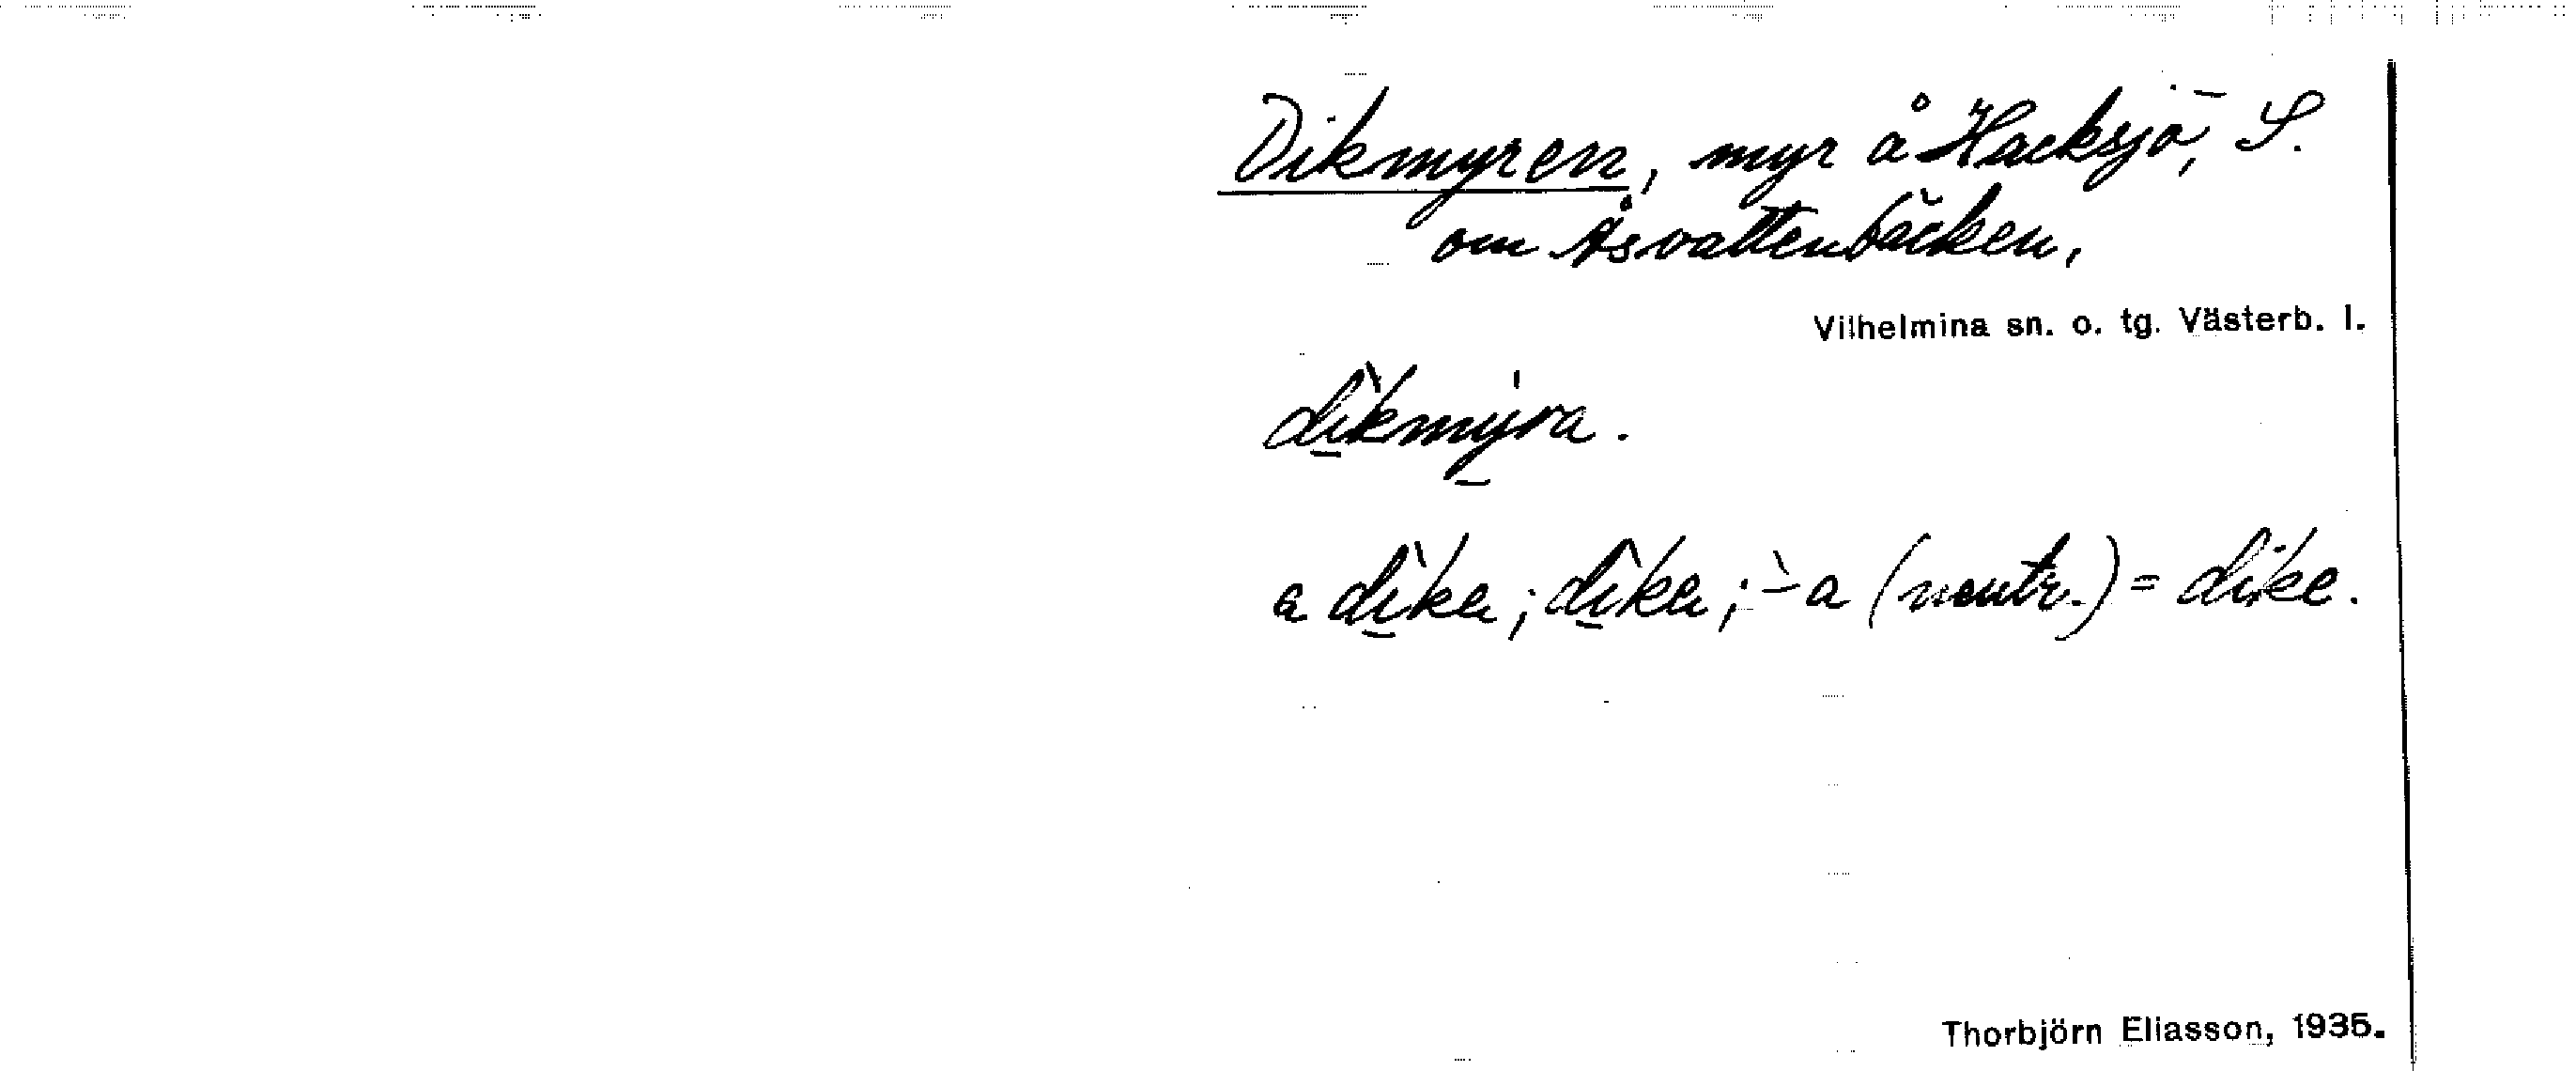 Dikmyren, myr å Hacksjö, S.
om Åsvattenbäcken,
Vilhelmina sn. o. tg. Västerb. l.
dìkmy̍ra.
a dìka; dìka; -̀a (neutr.) = dike.
Thorbjörn Eliasson, 1935.